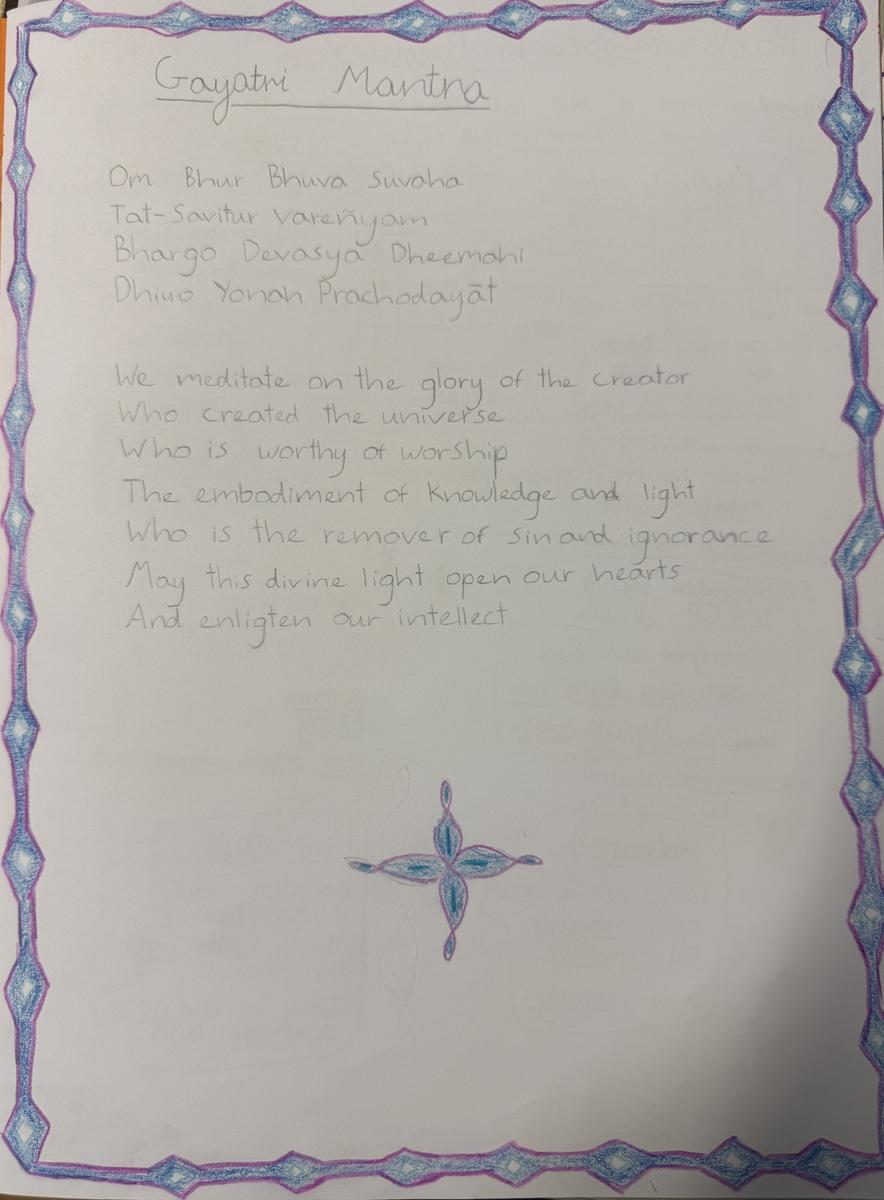 Gayatri Mantra
Om Bhur Bhuva Suvaha
Tat-Savitur Vareñyam
Bhargo Devasya Dheemahi
Dhiuo Yonah Prachodayāt
We meditate on the glory of the creator
Who created the universe
Who is worthy of worship
The embodiment of knowledge and light
Who is the remover of sin and ignorance
May this divine light open our hearts
And enligten our intellect